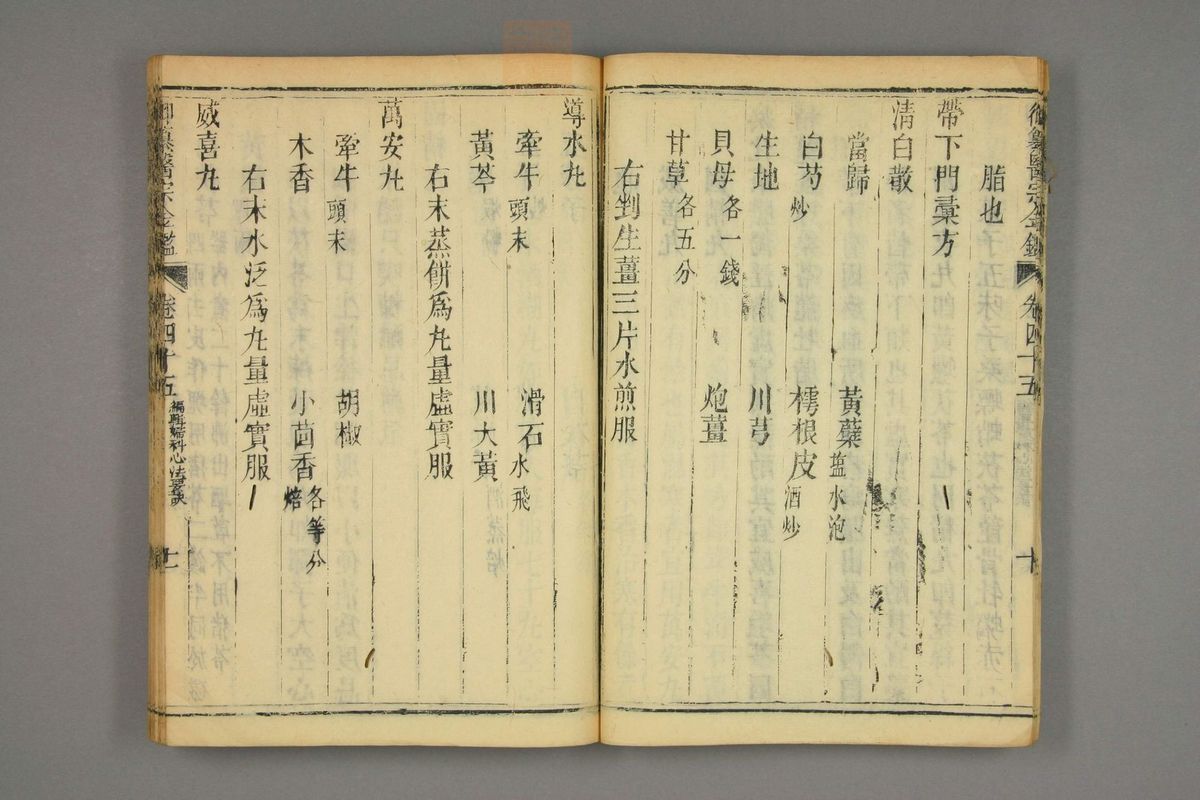 御纂醫宗金鑑 卷四十五 十
脂也
帶下門彙方
清白散
當歸 黃蘗塩水泡
白芍炒 樗根皮酒炒
生地 川芎
貝母各一錢 炮薑
甘草各五分
右剉生薑三片水煎服
導水丸
牽牛頭末 滑石水飛
黃芩 川大黃
右末蒸餅為丸量虛實服
萬安丸
牽牛頭末 胡椒
木香 小茴香焙各等分
右末水泛為丸量虛實服
威喜丸
御纂醫宗金鑑 卷四十五 編輯婦科心法要訣 十一